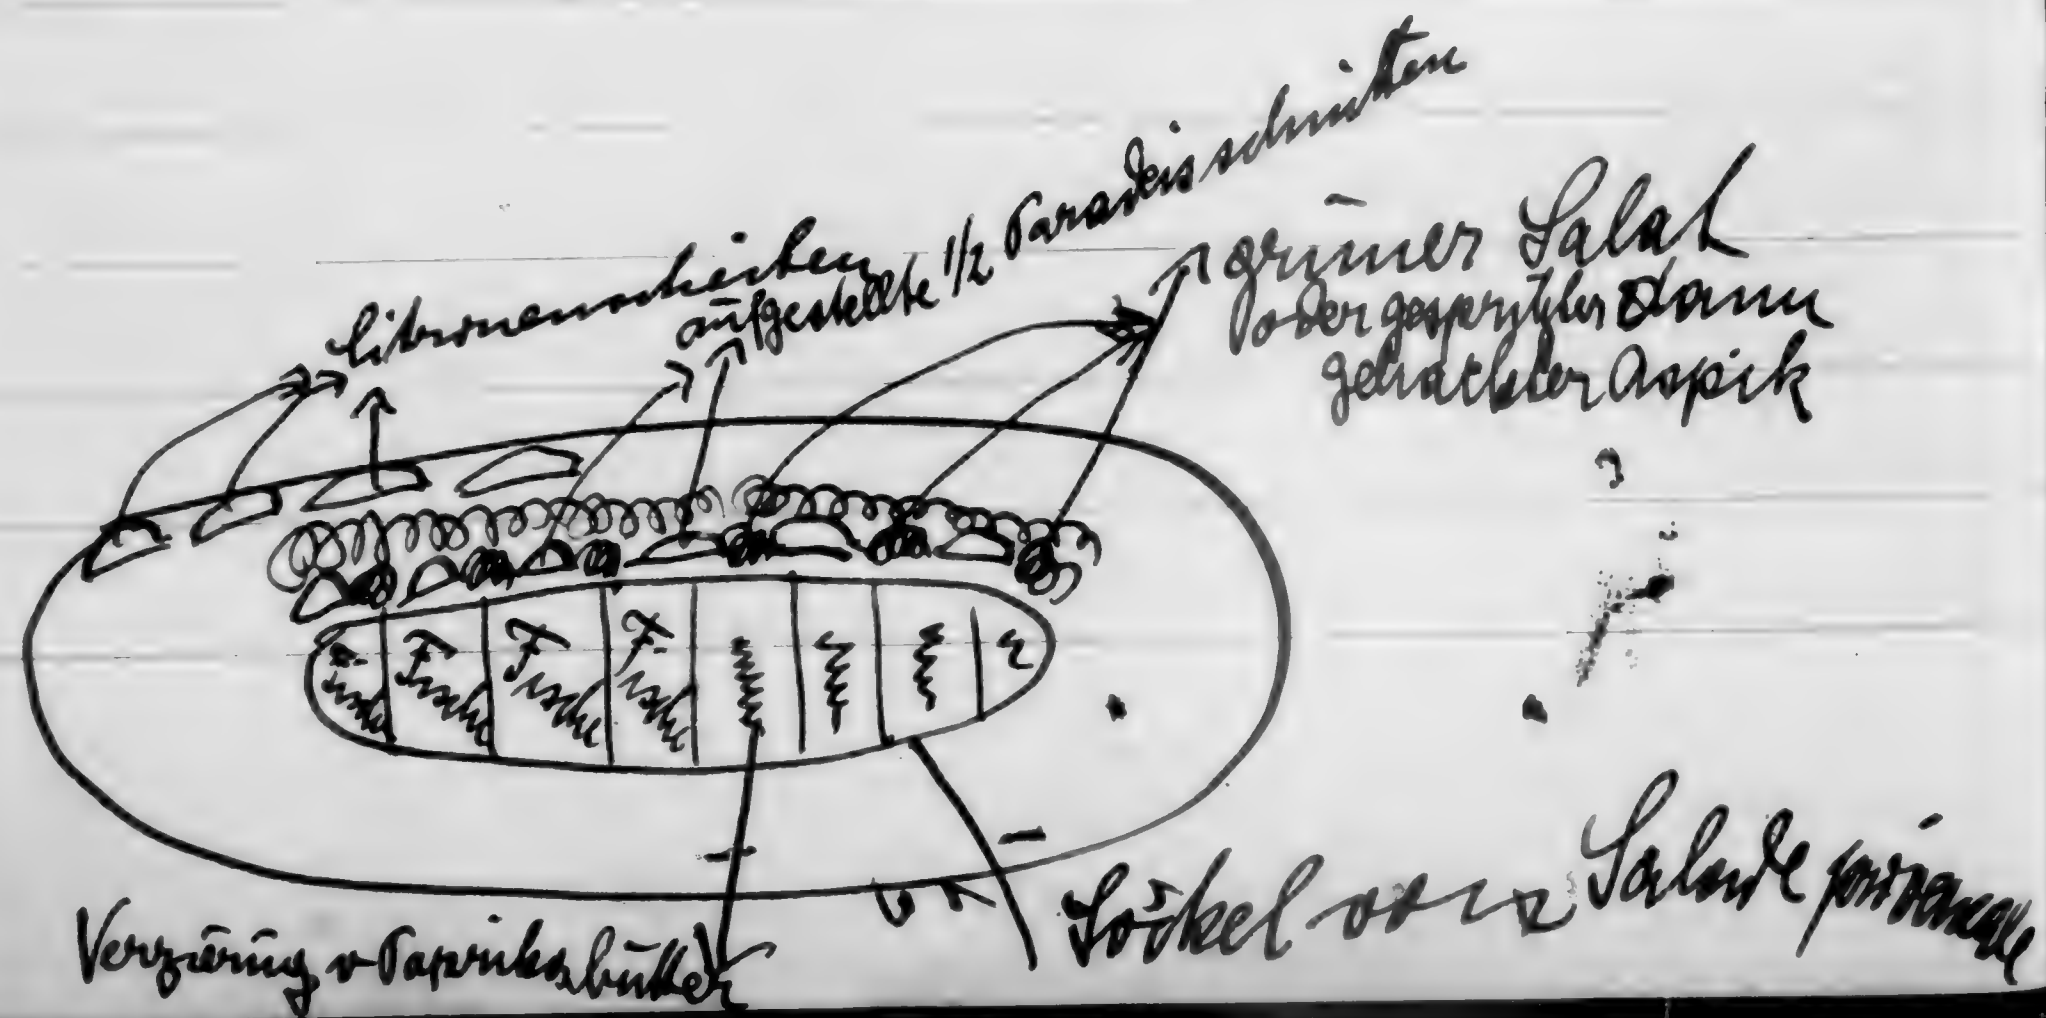 Citronenscheiben
aufgestellte 1/2 Paradeisschnitten
grüner Salat
oder gespritzter dann
gehackter Aspik
Fische Fische Fische Fische
Verzierung v Paprikabutter
Sockel von Salade